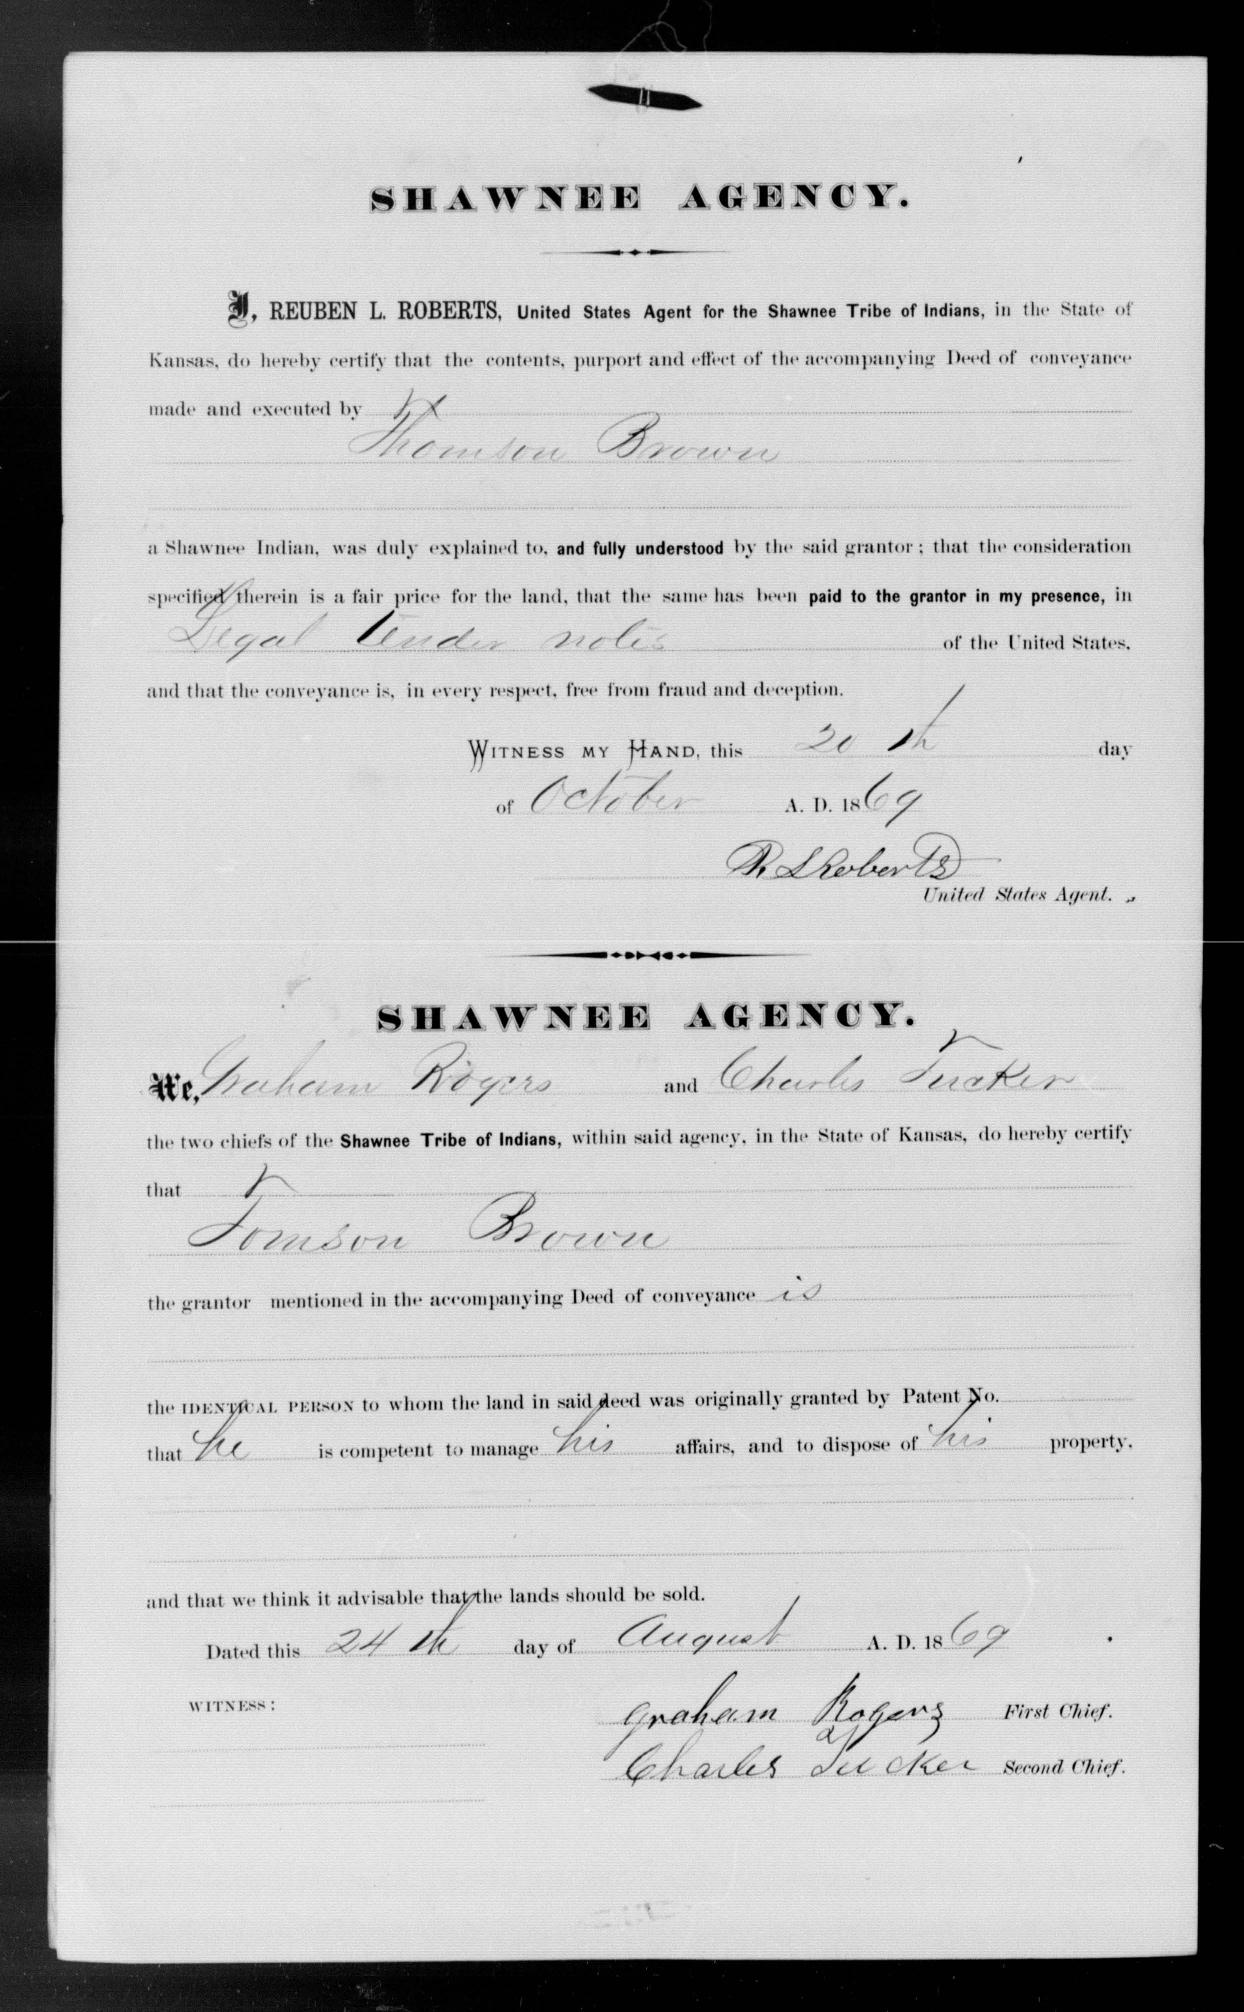 SHAWNEE AGENCY.
I, REUBEN L. ROBERTS, United States Agent for the Shawnee Tribe of Indians, in the State of
Kansas, do hereby certify that the contents, purport and effect of the accompanying Deed of conveyance
made and executed by
Thomson Brown
a Shawnee Indian, was duly explained to, and fully understood by the said grantor; that the consideration
specified therein is a fair price for the land, that the same has been paid to the grantor in my presence, in
Legal tender notes of the United States,
and that the conveyance is, in every respect, free from fraud and deception.
WITNESS MY HAND, this 20th day
of October A. D. 1869
R. L Roberts
United States Agent.
SHAWNEE AGENCY.
We, Graham Rogers and Charles Tucker
the two chiefs of the Shawnee Tribe of Indians, within said agency, in the State of Kansas, do hereby certify
that
Tomson Brown
the grantor mentioned in the accompanying Deed of conveyance is
the IDENTICAL PERSON to whom the land in said deed was originally granted by Patent No.
that he is competent to manage his affairs, and to dispose of his property,
and that we think it advisable that the lands should be sold.
Dated this 24th day of August A. D. 1869
WITNESS:
Graham Rogers First Chief.
Charles Tucker Second Chief.